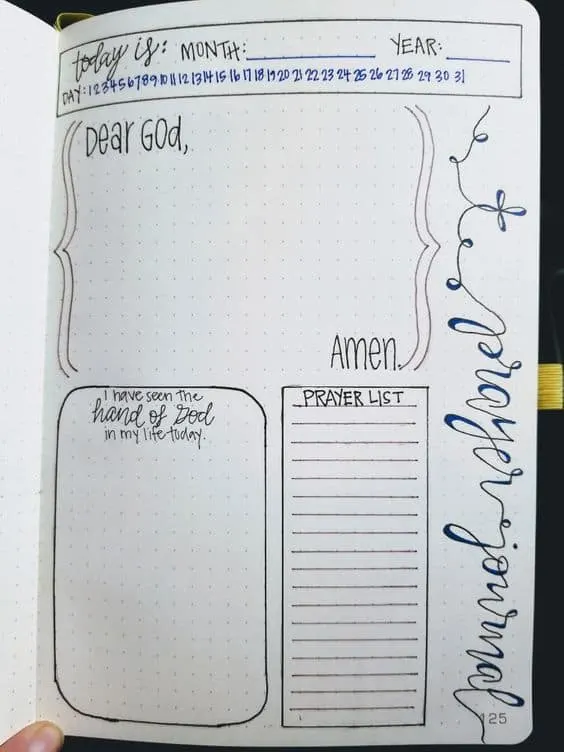 today is: MONTH: YEAR:
DAY: 1 2 3 4 5 6 7 8 9 10 11 12 13 14 15 16 17 18 19 20 21 22 23 24 25 26 27 28 29 30 31
Dear God,
Amen.
I have seen the
hand of God
in my life today.
PRAYER LIST
prayer journal
125